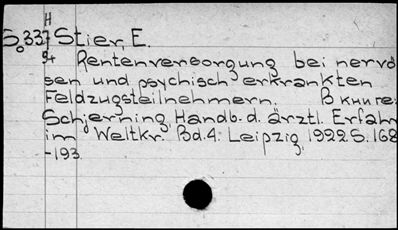 H
So337 Stier, E.
9+ Rentenversorgung bei nervö
sen und psychisch erkrankten
Feldzugsteilnehmern. В книге:
Schjerning, Handb. d. ärztl. Erfahr
im Weltkr. Bd. 4. Leipzig, 1922. S. 168
-193.